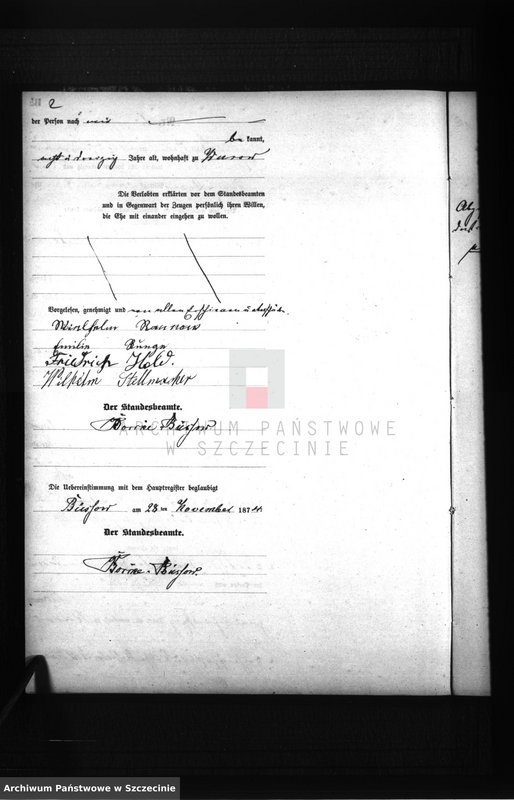 2
der Person nach
be kannt,
Jahre alt, wohnhaft zu
Die Verlobten erklärten vor dem Standesbeamten
und in Gegenwart der Zeugen persönlich ihren Willen,
die Ehe mit einander eingehen zu wollen.
Vorgelesen, genehmigt und von allen
Wilhelm
Emilie Runge
Friedrich Held.
Wilhelm Stellmacher
Der Standesbeamte.
Büssow
ARCHIWUM PAŃSTWOWE
W SZCZECINIE
Die Uebereinstimmung mit dem Hauptregister beglaubigt
Büssow am 28 ten November 1874.
Der Standesbeamte.
Büssow.
Archiwum Państwowe w Szczecinie